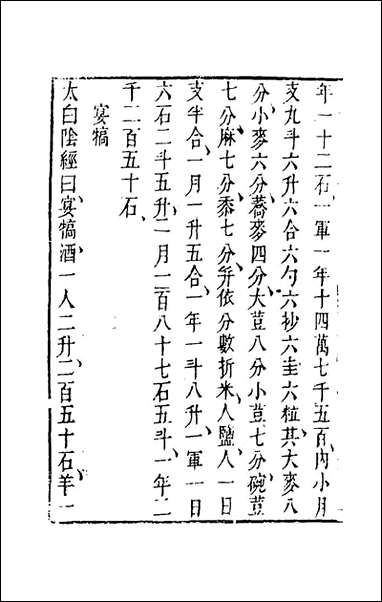 年一十二石一軍一年十四萬七千五百內小月
支九斗六升六合六勺六抄六圭六粒其大麥八
分小麥六分蕎麥四分大荳八分小荳七分碗荳
七分麻七分黍七分并依分數折米人鹽人一日
支半合一月一升五合一年一斗八升一軍一日
六石二斗五升一月一百八十七石五斗一年二
千二百五十石
宴犒
太白陰經曰宴犒酒一人二升二百五十石羊一